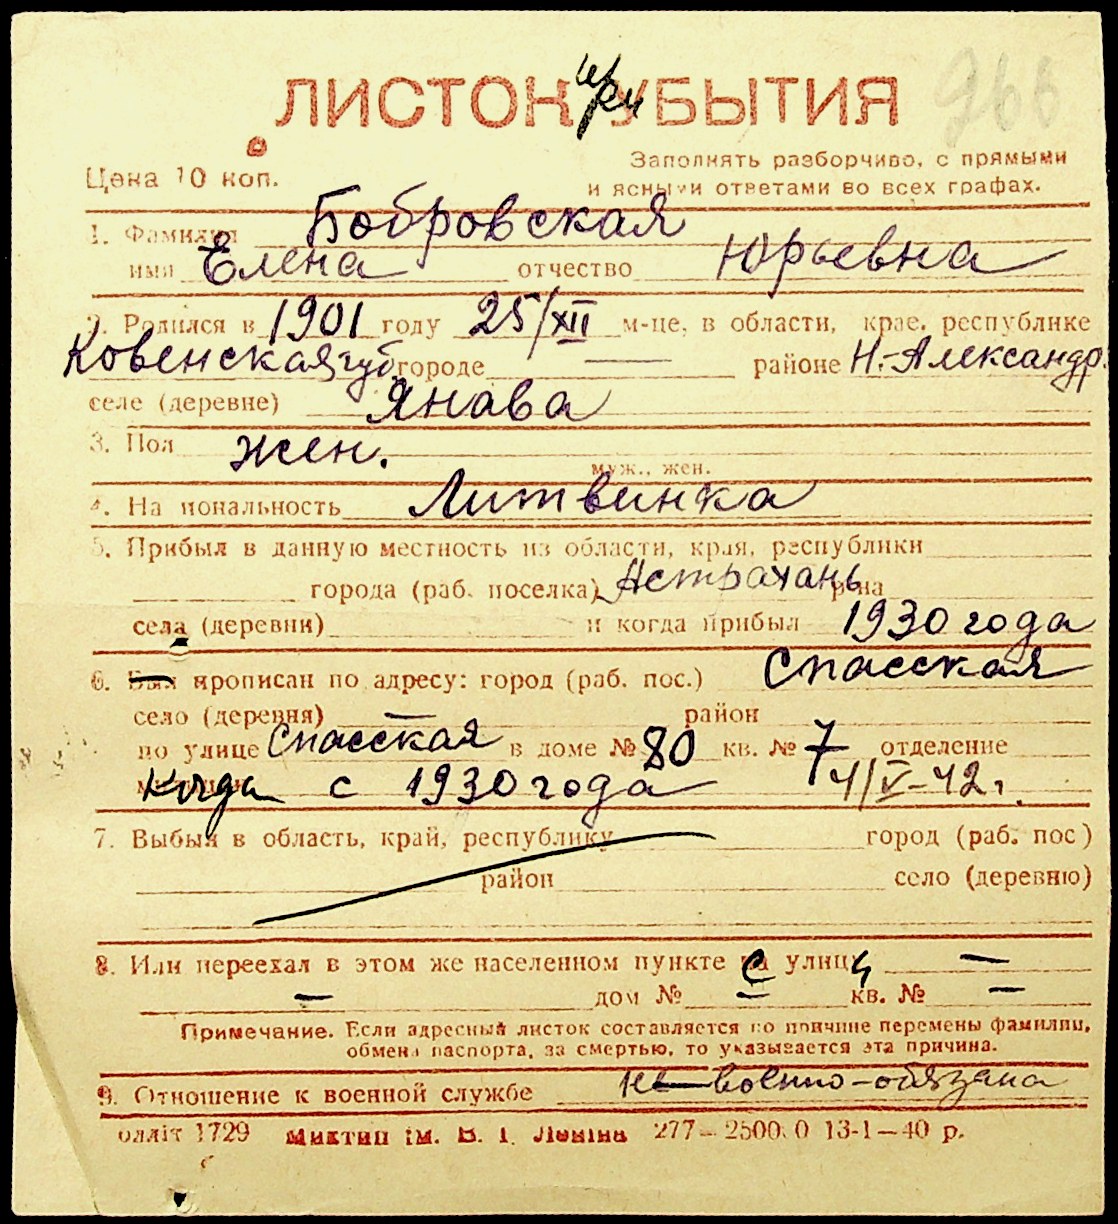 ЛИСТОК УБЫТИЯ
при
966
Цена 10 коп.
Заполнять разборчиво, с прямыми
и ясными ответами во всех графах.
1. Фамилия Бобровская
имя Елена отчество Юрьевна
2. Родился в 1901 году 25/XII м-це, в области, крае, республике
Ковенская губ. городе — районе Н.-Александр.
селе (деревне) Янава
3. Пол жен.
муж., жен.
4. Национальность Литвинка
5. Прибыл в данную местность из области, края, республики
города (раб. поселка) Астрахань р-на
села (деревни) и когда прибыл 1930 года
6. Был прописан по адресу: город (раб. пос.) Спасская
село (деревня) — район
по улице Спасская в доме № 80 кв. № 7 отделение
Когда с 1930 года 4/V-42г.
7. Выбыл в область, край, республику город (раб. пос)
район село (деревню)
8. Или переехал в этом же населенном пункте с улицы —
— дом № — кв. № —
Примечание. Если адресный листок составляется по причине перемены фамилии,
обмена паспорта, за смертью, то указывается эта причина.
9. Отношение к военной службе не военно-обязана
олліт 1729 Миктип ім. В. І. Леніна 277—2500.0 13-1—40 р.